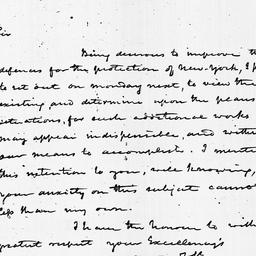 Sir
Being desirous to improve th
defences for the protection of New-York, I p
to set out on monday next, to view the
existing and determine upon the places
situations, for such additional works
may appear indispensible, and within
our means to accomplish. I mention
this intention to you, well knowing,
your anxiety on this subject cannot
less than my own.
I have the honour to with
respect your Excellency's